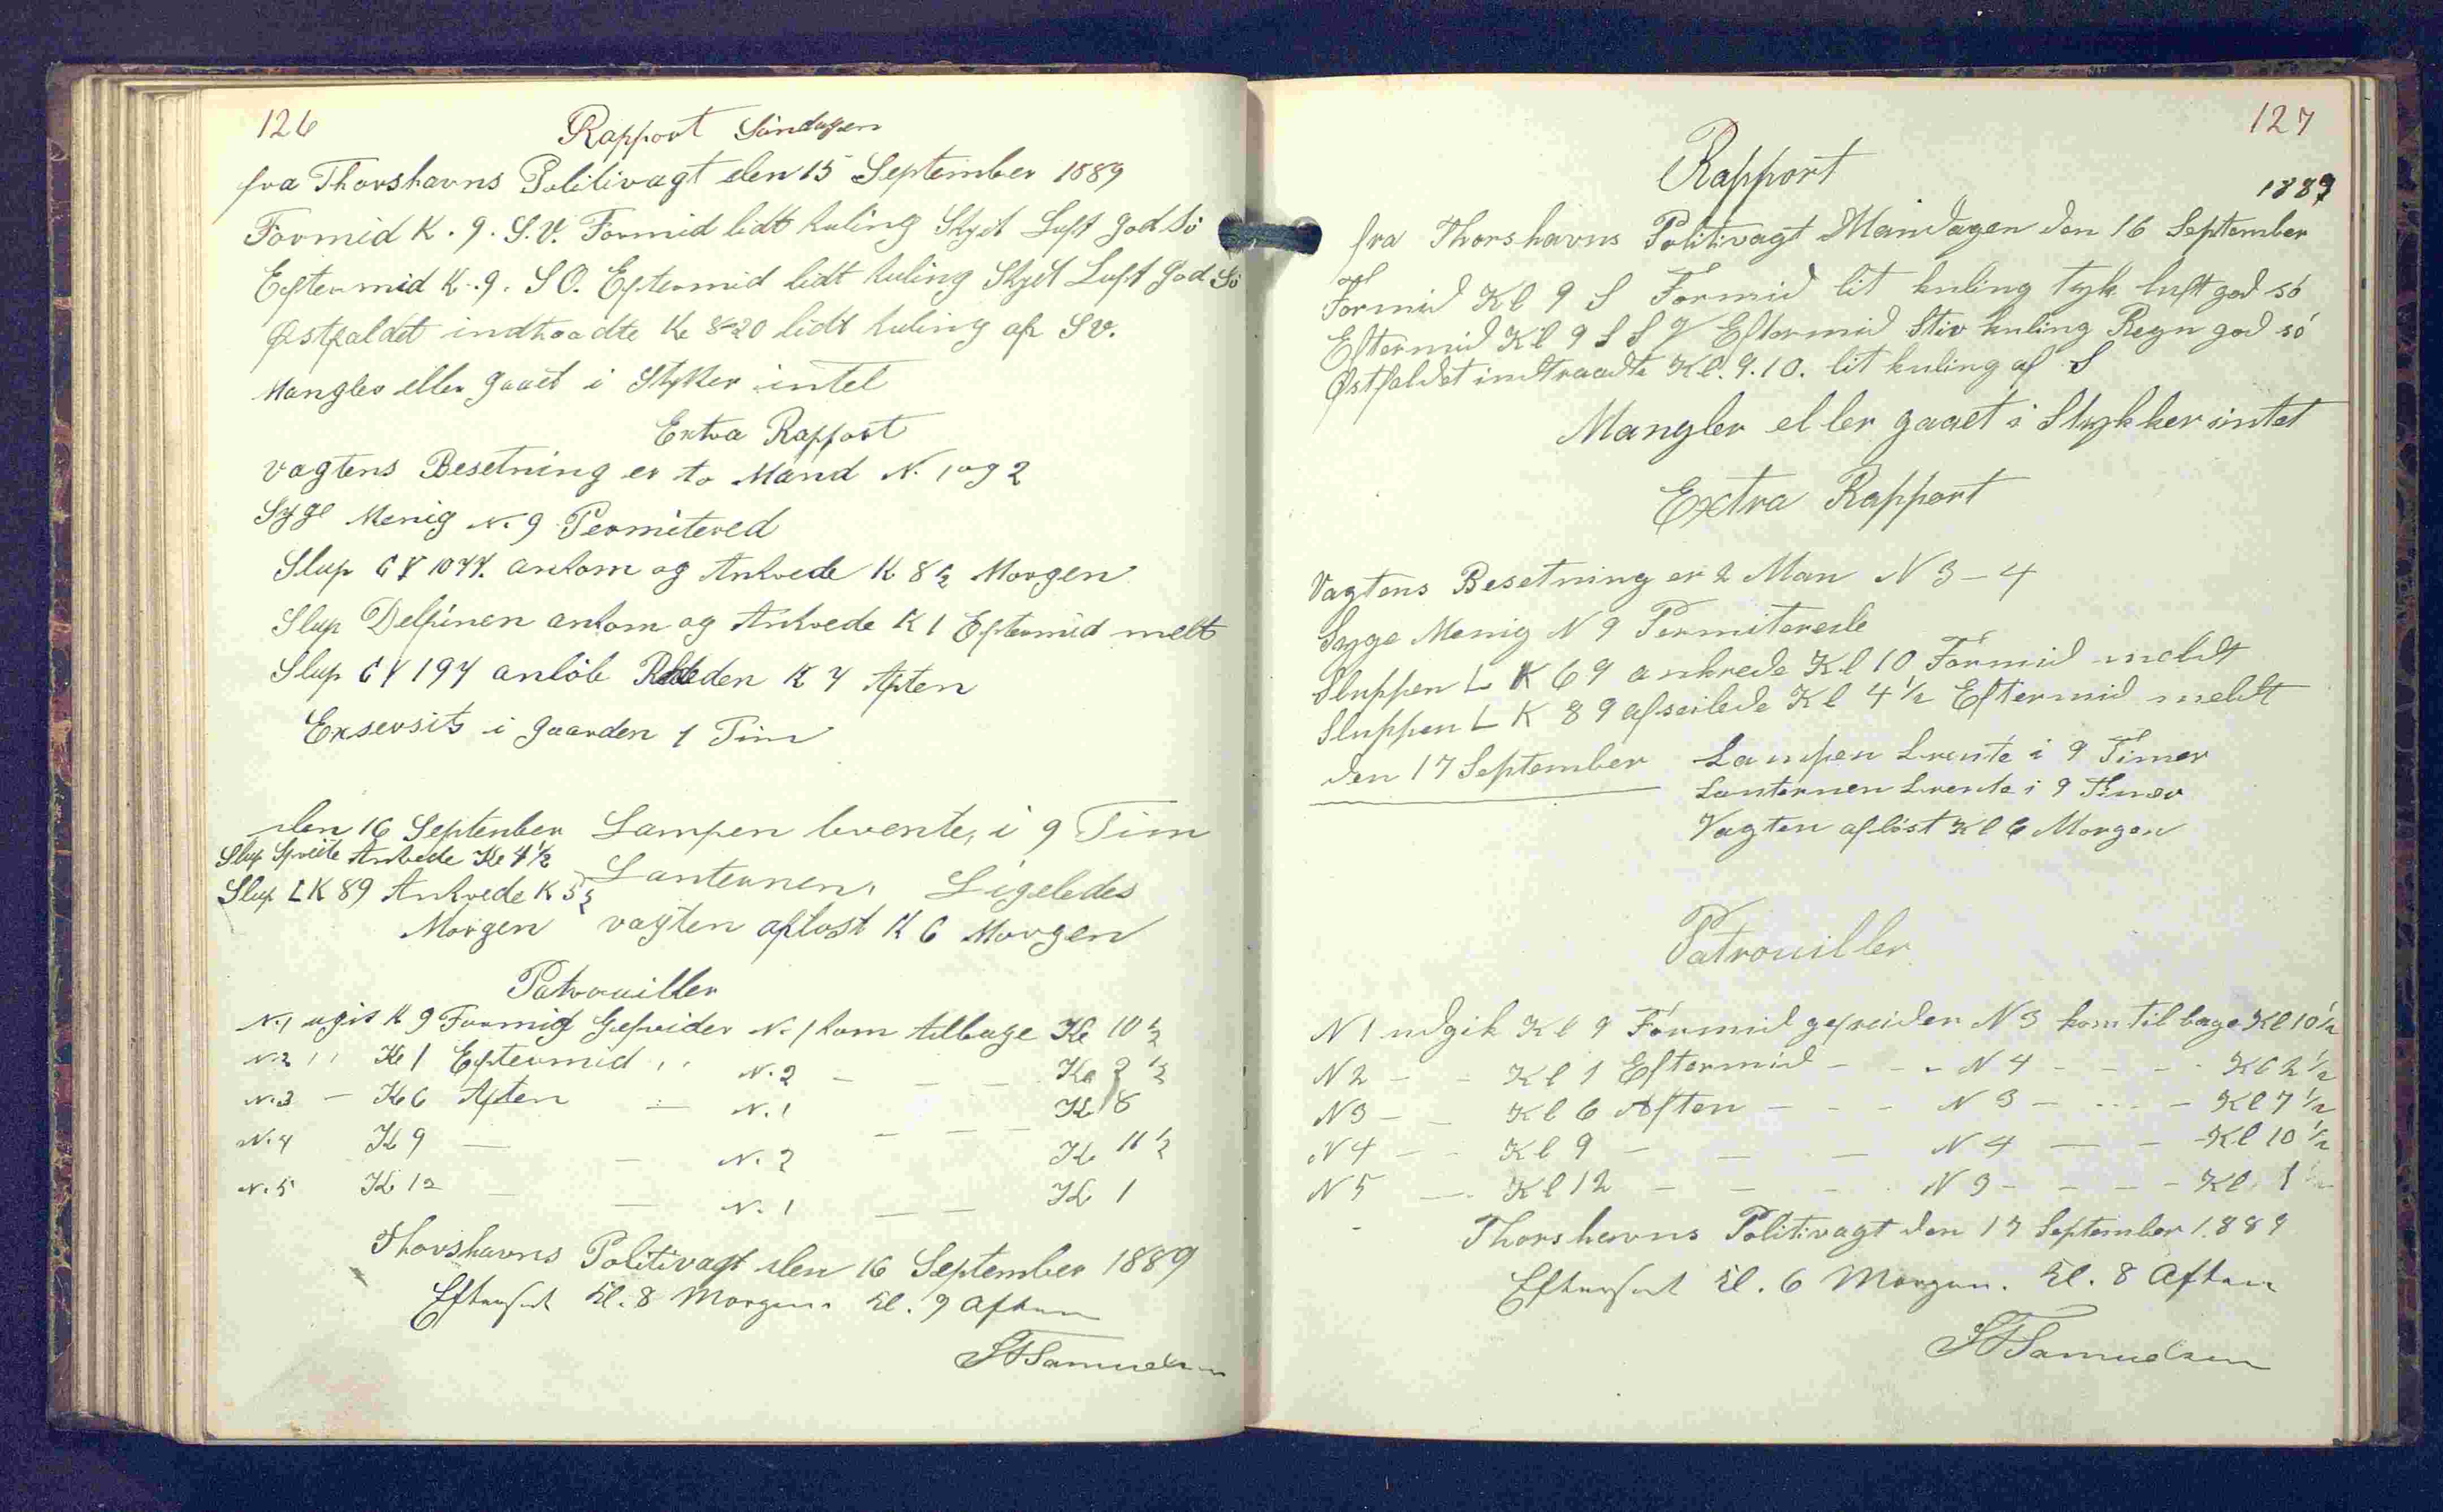 126
Rapport Søndagen
fra Thorshavns Politivagt den 15 September 1889
Formid K. 9. S.V. Formid lidt kuling Skyet Luft god Sö
Eftermid K. 9. SO. Eftermid lidt kuling Skyet Luft god Sö
Østfaldet indtraadte Kl 8-20 lidt kuling af SV.
Mangler eller gaaet i Stykker intet
Extra Rapport
vagtens Besetning er to Mand N. 1 og 2
Syge Menig N. 9 Permitered
Slup ankom og Ankrede K 8½ Morgen
Slup Delfinen ankom og Ankrede K 1 Eftermid melt
Slup 197 anlöb Reden K 7 Aften
Exsersits i Gaarden 1 Tim
den 16 September Lampen brente, i 9 Tim
Slup Ankrede Kl 4½
Slup LK 89 Ankrede K 5½ Lanternen, Ligeledes
Morgen vagten aflost K 6 Morgen
Patrouiller
N. 1 ugik K 9 Formid Gefreider N. 1 kom tilbage Kl 10½
N. 2 " Kl 1 Eftermid " N. 2 — — — Kl 2½
N. 3 — Kl 6 Aften — N. 1 — — — Kl 8
N. 4 Kl 9 — — N. 2 Kl 11½
N. 5 Kl 12 — — N. 1 — — Kl 1
Thorshavns Politivagt den 16 September 1889
Efterset Kl. 8 Morgen. Kl. 9 Aften
Samuelsen
127
Rapport
1889
fra Thorshavns Politivagt Mandagen den 16 September
Formid Kl 9 S Formid lit kuling tyk luft god sö
Eftermid Kl 9 S S V Eftermid Stiv kuling Regn god sö
Østfaldet indtraadte Kl. 9.10. lit kuling af S
Mangler eller gaaet i Stykker intet
Extra Rapport
Vagtens Besetning er 2 Man N 3 - 4
Syge Menig N 9 Permiterede
Sluppen L K 69 ankrede Kl 10 Formid meldt
Sluppen L K 89 afseilede Kl 4½ Eftermid meldt
den 17 September Lampen brente i 9 Timer
Lanternen brente i 9 Timer
Vagten aflöst Kl 6 Morgen
Patrouiller
N 1 udgik Kl 9 Formid gefreider N 3 kom tilbage Kl 10½
N 2 - - Kl 1 Eftermid - - - N 4 - - - - Kl 2½
N 3 - - Kl 6 Aften - - - N 3 - - - - Kl 7½
N 4 - - Kl 9 - - - N 4 - - Kl 10½
N 5 - Kl 12 - - - N 3 - - - - Kl. 1
Thorshavns Politivagt den 17 September 1889
Efterset Kl. 6 Morgen. Kl. 8 Aften
Samuelsen